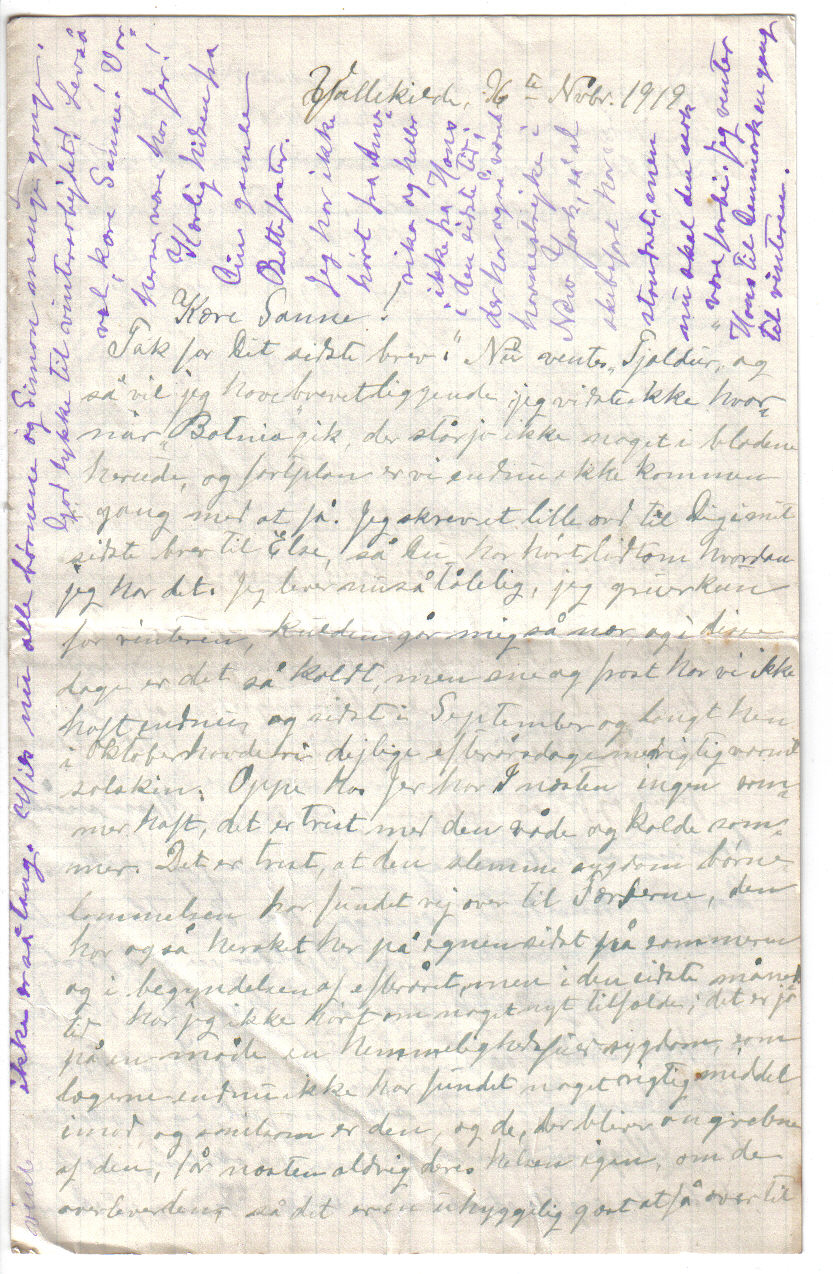 Vallekilde, 16 te Nvbr. 1919
Kære Sanne!
Tak for Dit sidste brev! Nu ventes "Tjaldur", og
så vil jeg have brevet liggende, jeg vidste ikke hvor-
når "Botnia" gik, der står jo ikke noget i bladene
herude, og fartplan er vi endnu ikke kommen
i gang med at få. Jeg skrev et lille ord til Dig i mit
sidste brev til Else, så Du har hørt lidt om hvordan
jeg har det. Jeg lever nu så tålelig, jeg gruer kun
for vinteren, kulden går mig så nær og i disse
dage er det så koldt, men sne og frost har vi ikke
haft endnu, og sidst i September og langt hen
i Oktober havde vi dejlige efterårsdage med rigtig varmt
solskin. Oppe hos Jer har I næsten ingen som-
mer haft, det er trist med den våde og kolde som-
mer. Det er trist, at den slemme sygdom børne-
lammelsen har fundet vej over til Færøerne, den
har også hersket her på egnen sidst på sommeren
og i begyndelsen af efteråret, men i den sidste måneds
tid har jeg ikke hørt om noget nyt tilfælde; det er jo
på en måde en hemmelighedsfuld sygdom, som
lægerne endnu ikke har fundet noget rigtig middel
imod, og smitsom er den, og de, der bliver angrebne
af den, får næsten aldrig deres helsen igen, om de
overlever den, så det er en uhyggelig gæst at få over til
ikke er så lang. Hils nu alle børnene og Simon mange gange.
God lykke til vinterarbejdet! Lev så
vel, kære Sanne! Vor
herre være hos Jer!
Kærlig hilsen fra
Din gamle
Bedstefader.
Jeg har ikke
hørt fra Ame-
rika og heller
ikke fra Hans
i den sidste tid,
der har også været
havnestrejke i
New York, så al
skibsfart har
standset, men
nu skal den nok
være forbi. Jeg venter
Hans til Danmark en gang
til vinteren.